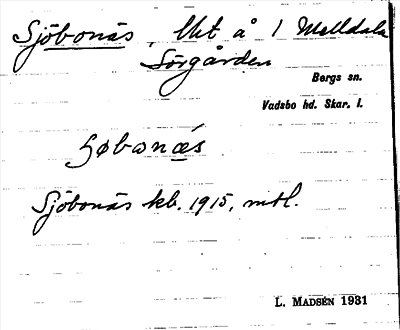 Sjöbonäs, Utt å 1 Melldala
Sörgården
Bergs sn.
Vadsbo hd. Skar. l.
ʂøbωnæ̀s
Sjöbonäs kb. 1915, mtl.
L. MADSÉN 1931